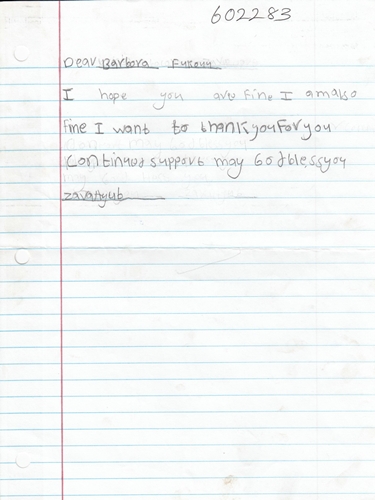 602283
Dear Barbora Fukova
I hope you are fine I amalso
fine I want to thankyouforyou
continued support may Godblessyou
zavaAyub